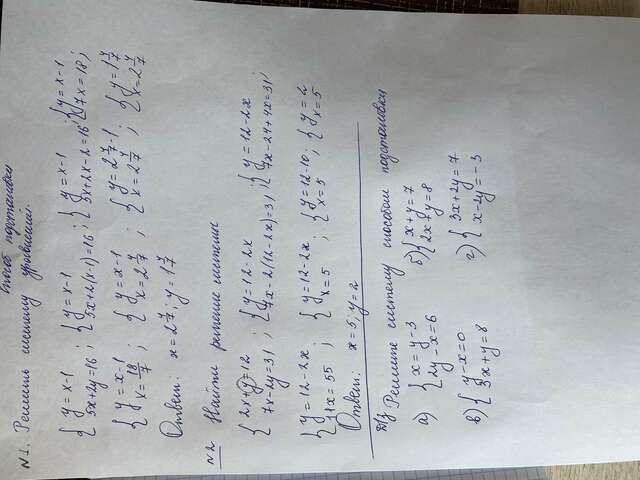 Способ подстановки
N1. Решить систему уравнений.
{ y = x-1 5x+2y=16 ; { y = x-1 5x+2(x-1)=16 ; { y = x-1 5x+2x-2=16 ; { y = x-1 7x=18 ;
{ y = x-1 x = 18/7 ; { y = x-1 x = 2 4/7 ; { y = 2 4/7 - 1 x = 2 4/7 ; { y = 1 4/7 x = 2 4/7
Ответ: x = 2 4/7 ; y = 1 4/7
N2 Найти решение системы
{ 2x+y=12 7x-2y=31 ; { y = 12-2x 7x-2(12-2x)=31 ; { y = 12-2x 7x-24+4x=31 ;
{ y = 12-2x 11x = 55 ; { y = 12-2x x = 5 ; { y = 12-10 x = 5 ; { y = 2 x = 5
Ответ: x = 5 ; y = 2
Д/з Решите систему способом подстановки
а) { x = y-3 2y-x=6 б) { x+y=7 2x+y=8
в) { y-x=0 3x+y=8 г) { 3x+2y=7 x-2y=-3